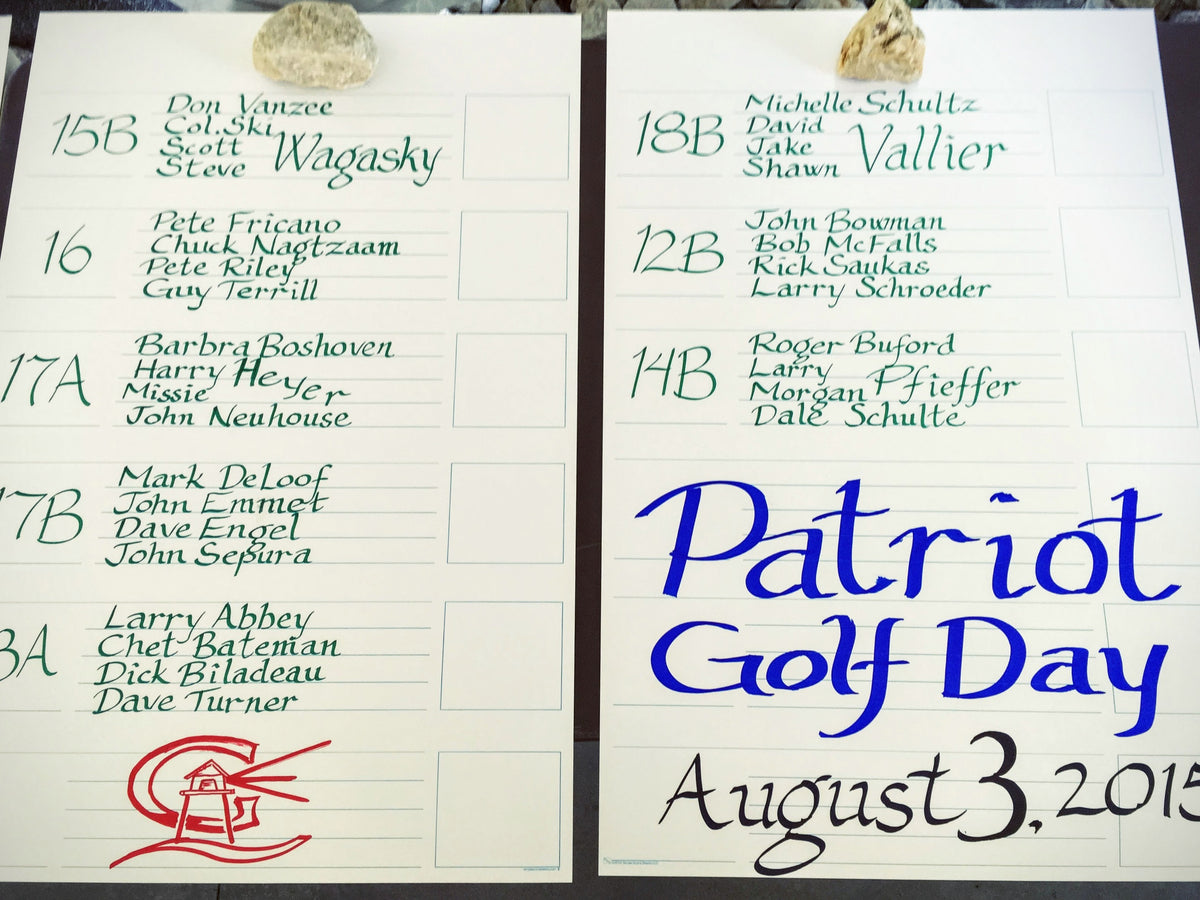 15B
Don Vanzee
Col. Ski
Scott Wagasky
Steve
16
Pete Fricano
Chuck Nagtzaam
Pete Riley
Guy Terrill
17A
Barbra Boshoven
Harry Heyer
Missie
John Neuhouse
17B
Mark DeLoof
John Emmet
Dave Engel
John Sepura
8A
Larry Abbey
Chet Bateman
Dick Biladeau
Dave Turner
18B
Michelle Schultz
David
Jake Vallier
Shawn
12B
John Bowman
Bob McFalls
Rick Saukas
Larry Schroeder
14B
Roger Buford
Larry
Morgan Pfieffer
Dale Schulte
Patriot
Golf Day
August 3, 2015